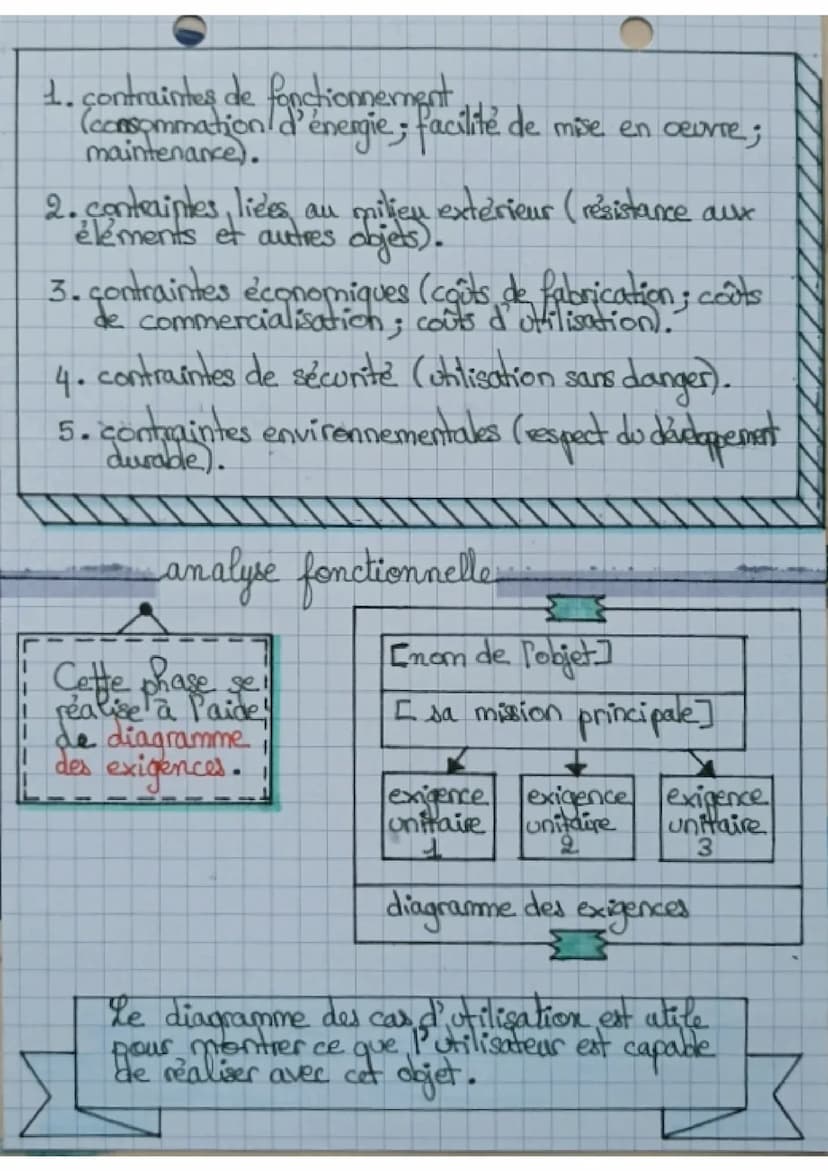 1. contraintes de fonctionnement
(consommation d'énergie ; facilité de mise en oeuvre ;
maintenance).
2. contraintes liées au milieu extérieur (résistance aux
éléments et autres objets).
3. contraintes économiques (coûts de fabrication ; coûts
de commercialisation ; coûts d'utilisation).
4. contraintes de sécurité (utilisation sans danger).
5. contraintes environnementales (respect du développement
durable).
analyse fonctionnelle
Cette phase se
réalise à l'aide
de diagramme
des exigences.
[nom de l'objet]
[sa mission principale]
exigence
unitaire
1
exigence
unitaire
2
exigence
unitaire
3
diagramme des exigences
Le diagramme des cas d'utilisation est utile
pour montrer ce que l'utilisateur est capable
de réaliser avec cet objet.